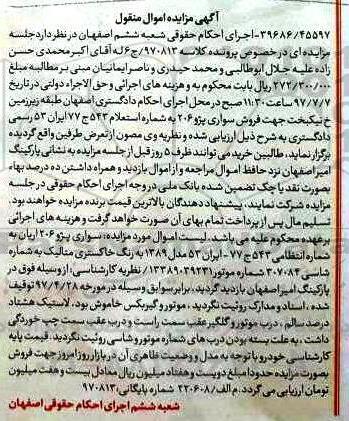 آگهی مزایده اموال منقول
۳۹۶۸۶/۴۵۵۹۷-اجرای احکام حقوقی شعبه ششم اصفهان در نظر دارد جلسه
مزایده ای در خصوص پرونده کلاسه ۹۷۰۸۱۳ج/۶ له آقای اکبر محمدی حسن
زاده علیه جلال ابوطالبی و محمد حیدری و ناصر ایمانیان مبنی بر مطالبه مبلغ
۲۷۲/۳۰۰/۰۰۰ ریال بابت محکوم به و هزینه های اجرائی و حق الاجراء دولتی در تاریخ
۹۷/۷/۷ ساعت ۱۱:۳۰ صبح در محل اجرای احکام دادگستری اصفهان طبقه زیرزمین
خ نیکبخت جهت فروش سواری پژو ۲۰۶ به شماره استعلام ۵۴۳ج۷۷ ایران ۵۳ رسمی
دادگستری به شرح ذیل ارزیابی شده و نظریه وی مصون از تعرض طرفین واقع گردیده
برگزار نماید، طالبین خرید می توانند ظرف ۵ روز قبل از جلسه مزایده به نشانی پارکینگ
امیر اصفهان نزد حافظ اموال مراجعه و از اموال بازدید و همراه داشتن ده درصد بهاء
بصورت نقد یا چک تضمین شده بانک ملی در وجه اجرای احکام حقوقی در جلسه
مزایده شرکت نمایند، پیشنهاد دهندگان بالاترین قیمت برنده مزایده خواهند بود.
تسلیم مال پس از پرداخت تمام بهای آن صورت خواهد گرفت و هزینه های اجرائی
بر عهده محکوم علیه می باشد. لیست اموال مورد مزایده: سواری پژو ۲۰۶ ریان به
شماره انتظامی ۵۴۳ج۷۷-ایران ۵۳ مدل ۱۳۸۹ به رنگ خاکستری متالیک به شماره
شاسی ۳۰۷۰۸۴ موتور ۱۳۳۸۹۰۳۹۲۳۱/ نظریه کارشناسی: از وسیله فوق در
پارکینگ امیر اصفهان بازدید گردید، برابر سوابق وسیله در مورخه ۹۷/۴/۲۸ توقیف
شده، اسناد و مدارک روئیت نگردید، موتور و گیربکس خاموش بود، لاستیک هشتاد
درصد سالم، درب موتور و گلگیر عقب سمت راست و درب عقب سمت چپ خوردگی
داشت، به علت بسته بودن درب های شماره موتور و شاسی روئیت نگردید. قیمت پایه
کارشناسی خودرو با توجه به مدل و وضعیت ظاهری آن در بازار روز امروز جهت فروش
بصورت مزایده حدودا مبلغ دویست و هفتاد میلیون ریال معادل بیست و هفت میلیون
تومان ارزیابی می گردد. م الف/ ۲۲۰۶۰۸ شماره بایگانی: ۹۷۰۸۱۳
شعبه ششم اجرای احکام حقوقی اصفهان